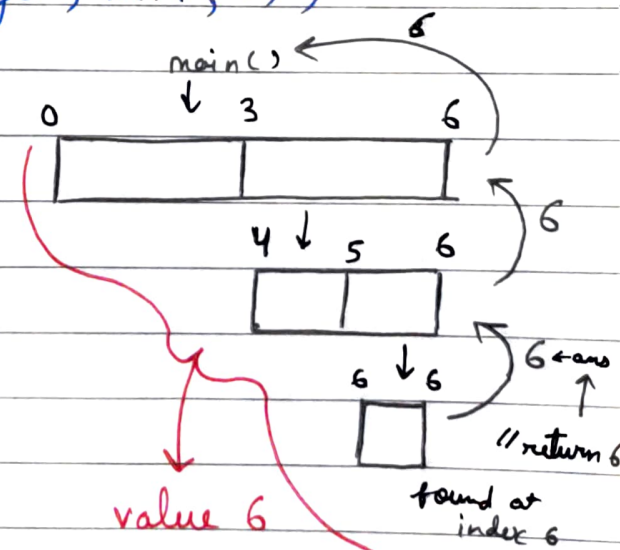 6
main()
0 3 6
4 5 6
6
6 ←ans
6 6
//return 6
found at
index 6
value 6